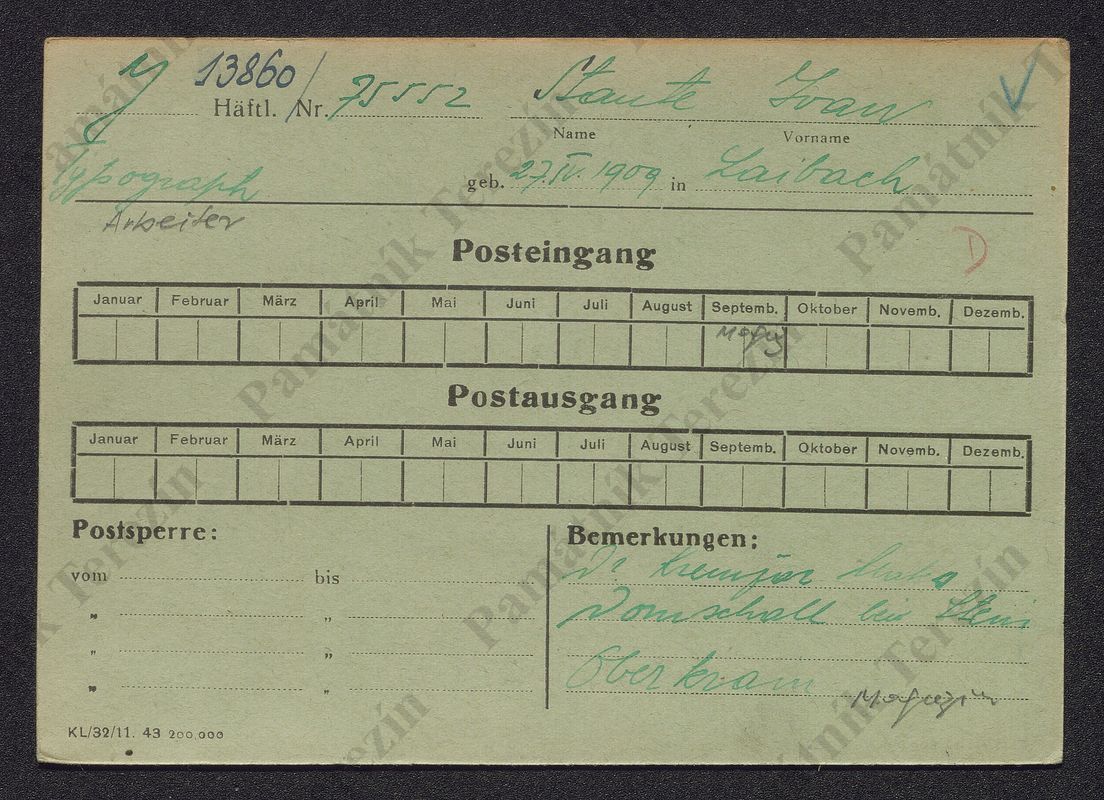 13860/
Häftl. Nr. 75552 Ivan
Name Vorname
Typograph geb. 27.IV.1909 in Laibach
Arbeiter
D
Posteingang
Januar Februar März April Mai Juni Juli August Septemb. Oktober Novemb. Dezemb.
Postausgang
Januar Februar März April Mai Juni Juli August Septemb. Oktober Novemb. Dezemb.
Postsperre: Bemerkungen:
vom bis Dr
„ „ Domschall bei Stein
„ „
„ „ Oberkrain Magazin
KL/32/11. 43 200.000
Památník Terezín